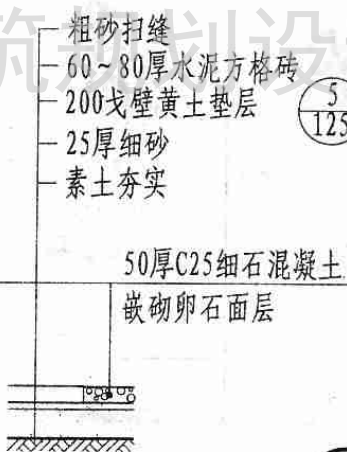 粗砂扫缝
60~80厚水泥方格砖
200戈壁黄土垫层
25厚细砂
素土夯实
5
125
50厚C25细石混凝土
嵌砌卵石面层
筑规划设